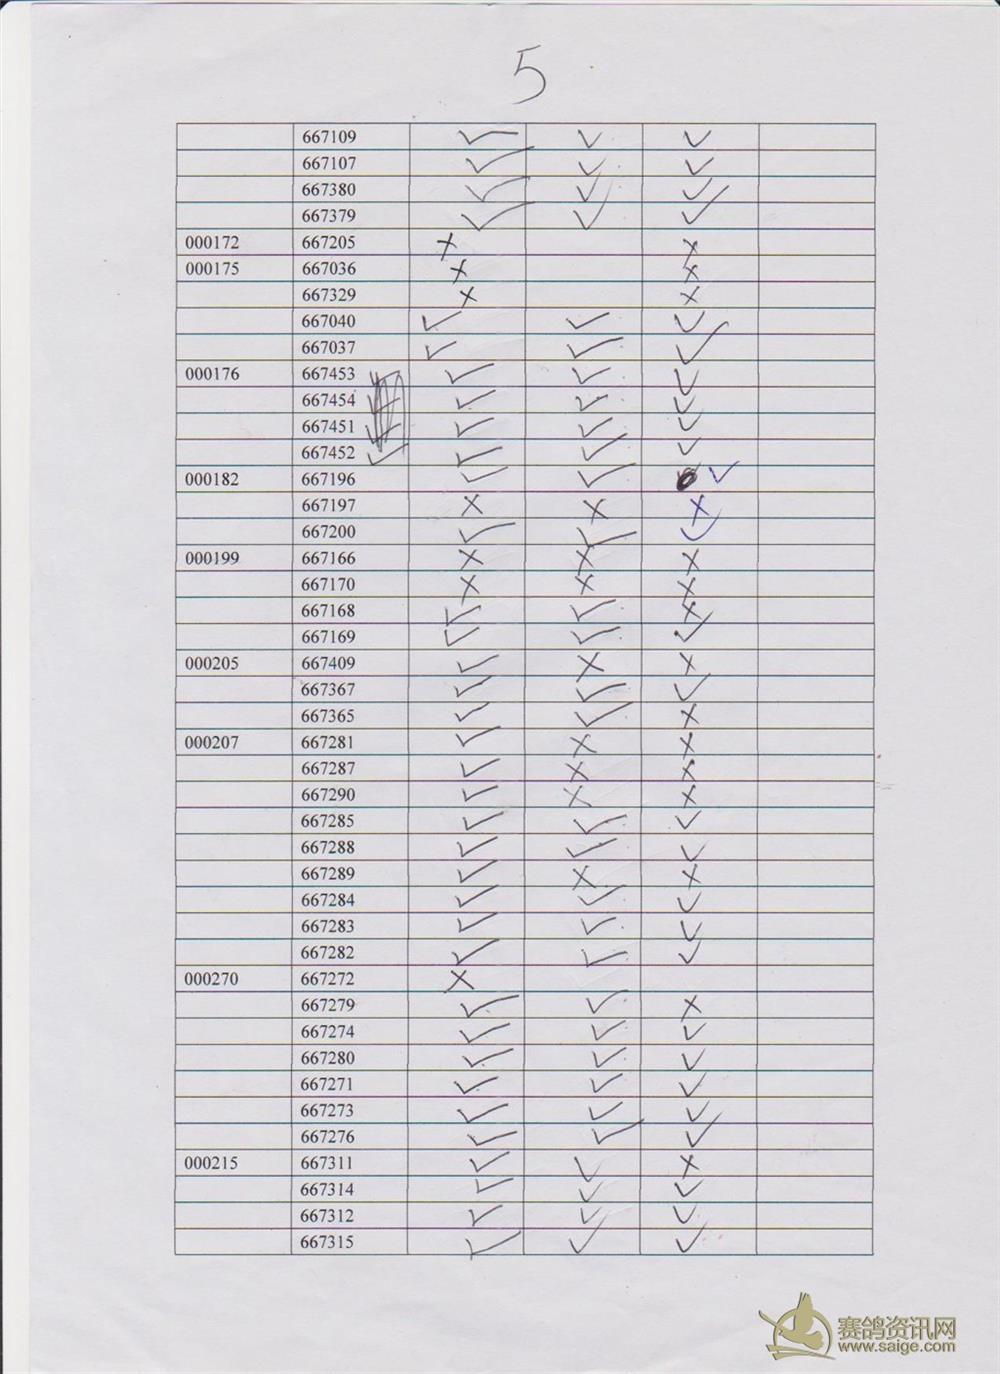 5
667109 ✓ ✓ ✓
667107 ✓ ✓ ✓
667380 ✓ ✓ ✓
667379 ✓ ✓ ✓
000172 667205 × ×
000175 667036 × ×
667329 × ×
667040 ✓ ✓ ✓
667037 ✓ ✓ ✓
000176 667453 ✓ ✓ ✓
667454 ✓ ✓ ✓
667451 ✓ ✓ ✓
667452 ✓ ✓ ✓ ✓
000182 667196 ✓ ✓ ✓
667197 × × ×
667200 ✓ ✓ ✓
000199 667166 × × ×
667170 × × ×
667168 ✓ ✓ ×
667169 ✓ ✓ ✓
000205 667409 ✓ × ×
667367 ✓ ✓ ✓
667365 ✓ ✓ ×
000207 667281 ✓ × ×
667287 ✓ × ×
667290 ✓ × ×
667285 ✓ ✓ ✓
667288 ✓ ✓ ✓
667289 ✓ × ×
667284 ✓ ✓ ✓
667283 ✓ ✓ ✓
667282 ✓ ✓ ✓
000270 667272 ×
667279 ✓ ✓ ×
667274 ✓ ✓ ✓
667280 ✓ ✓ ✓
667271 ✓ ✓ ✓
667273 ✓ ✓ ✓
667276 ✓ ✓ ✓
000215 667311 ✓ ✓ ×
667314 ✓ ✓ ✓
667312 ✓ ✓ ✓
667315 ✓ ✓ ✓
赛鸽资讯网
www.saige.com